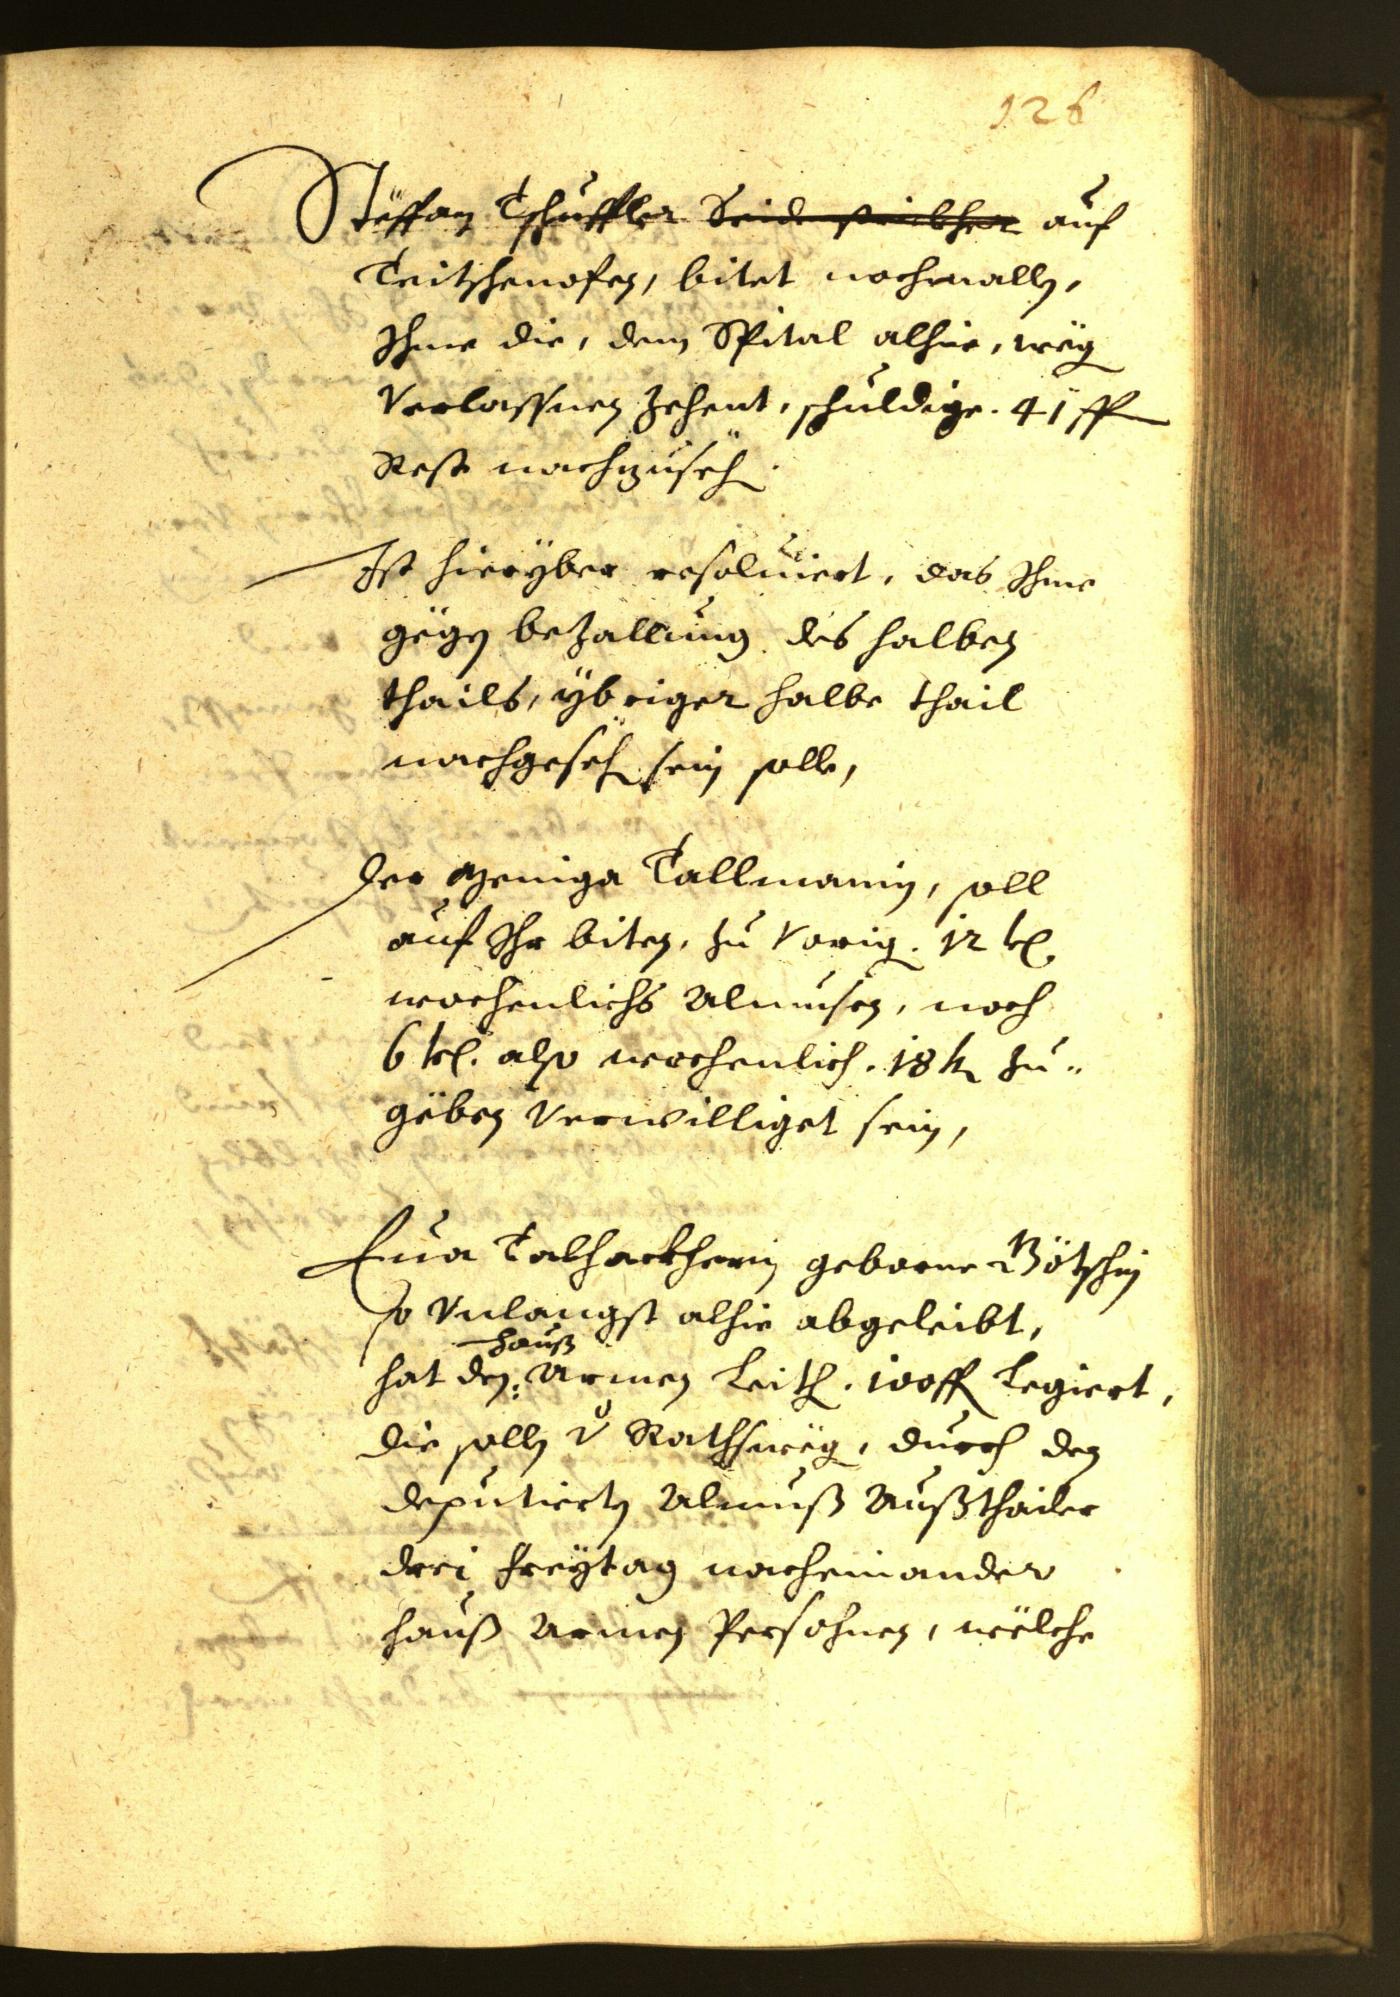 126
Steffan Tschuffler Seidenstrickher auf
Teitschenofen, bitet nochmalln,
Ihme die, dem Spital alhie, weg
Verlassnen Zehent, schuldige. 41 ff
Rest nachzuseh.
Ist hierÿber resoluiert, das Ihme
gegen bezallung des halben
thails, ÿbriger halbe thail
nachgeseh sein solle,
Der Tallmanin, soll
auf Ihr biten, zu Vorig. 12 kr
wochenlichs Almusen, noch
6 kr. also wochenlich. 18 kr zu„
geben Verwilliget sein,
Eua Talhackherin geborne Bötschin
so Vnlangst alhie abgeleibt,
hauß
hat den: Armen Leith. 100 ff Legiert,
die solln v Rathsweg, durch den
deputierten Almuß Außthailer
drei Freÿtag nacheinander
hauß Armen Persohnen, welche